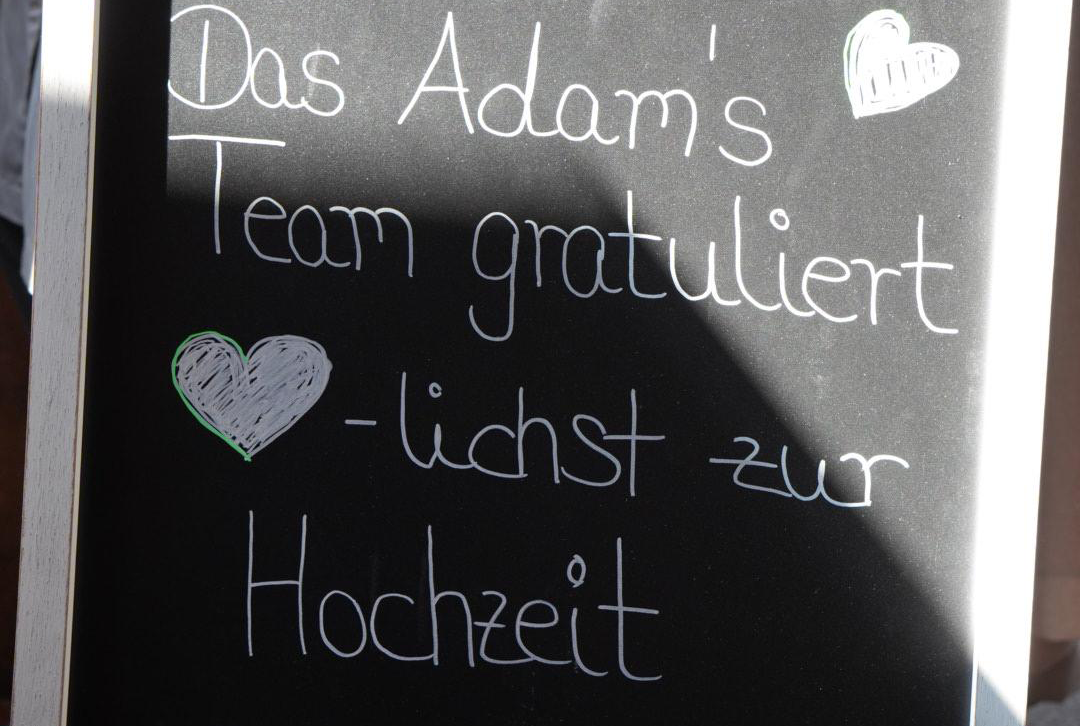 Das Adam's
Team gratuliert
-lichst zur
Hochzeit